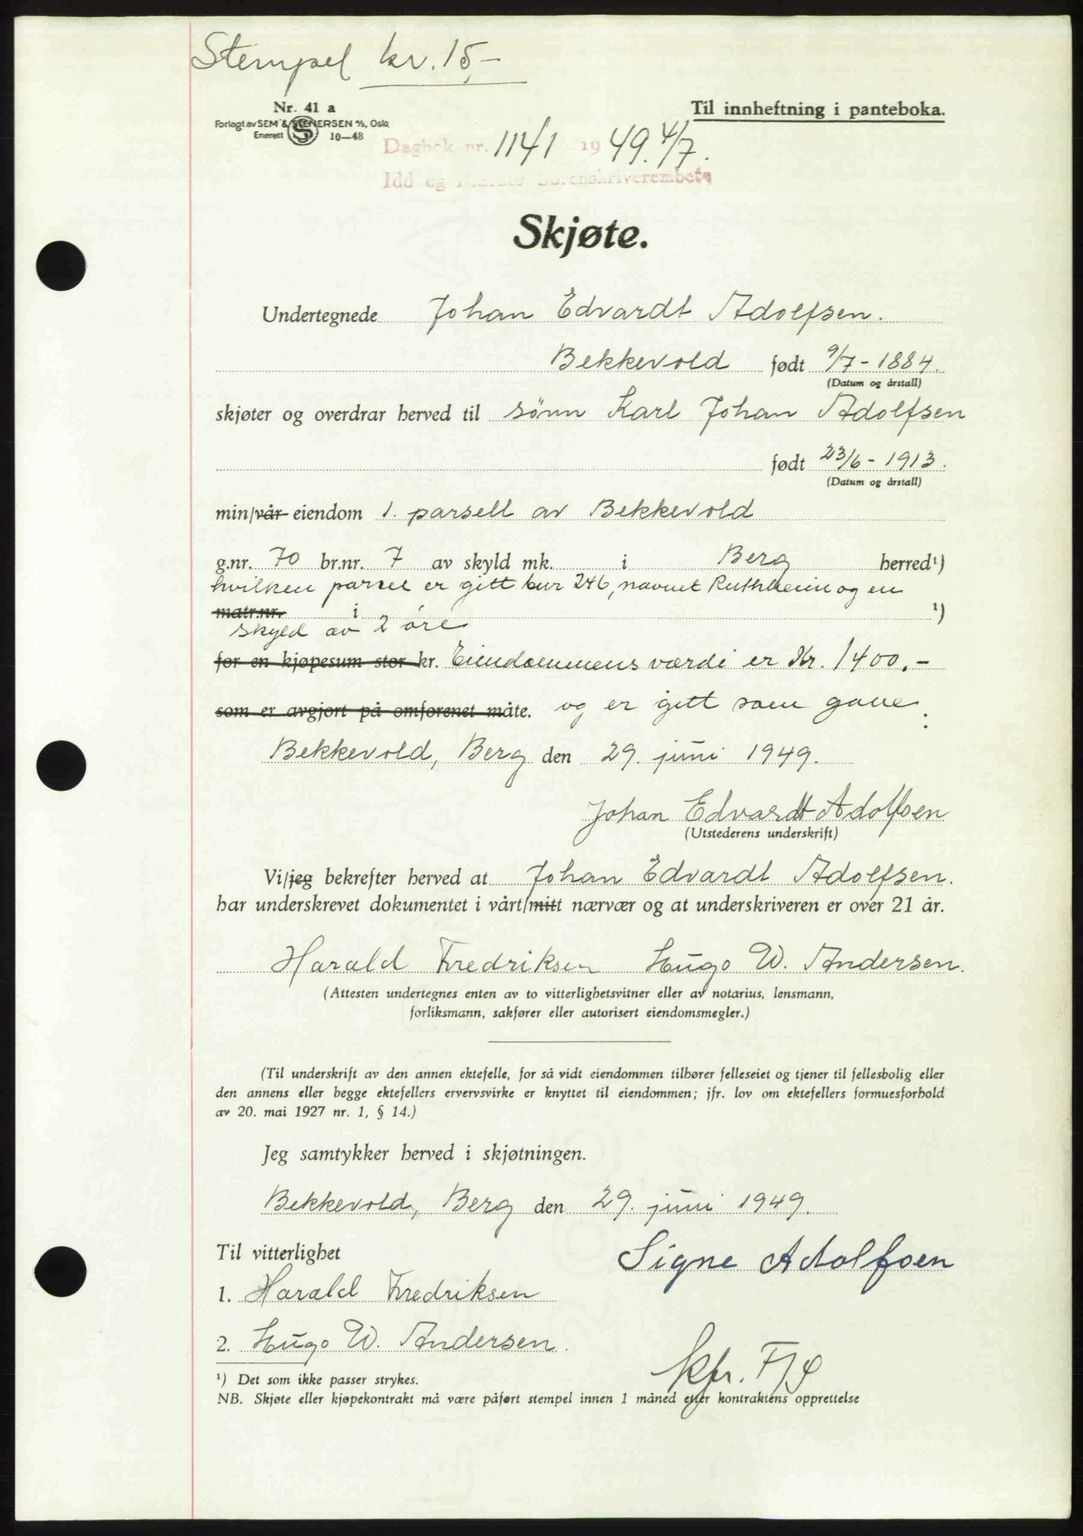 Stempel kr. 15,-
Nr. 41 a
Forlagt av SEM & STENERSEN A/S, Oslo
Enerett 10—48
Til innheftning i panteboka.
Dagbok nr. 1141 1949. 4/7.
Idd og Marker Sorenskriverembete
Skjøte.
Undertegnede Johan Edvardt Adolfsen.
Bekkevold født 9/7 - 1884.
(Datum og årstall)
skjøter og overdrar herved til sønn Karl Johan Adolfsen
født 23/6 - 1913.
(Datum og årstall)
min/vår eiendom 1. parsell av Bekkevold
g.nr. 70 br.nr. 7 av skyld mk. i Berg herred¹)
hvilken parsel er gitt bnr 246, navnet Ruthheim og en
matr.nr. i ¹)
skyld av 2 øre
for en kjøpesum stor kr. Eiendommens værdi er Kr. 1400,-
som er avgjort på omforenet måte. og er gitt som gave.
Bekkevold, Berg den 29. juni 1949.
Johan Edvardt Adolfsen
(Utstederens underskrift)
Vi/jeg bekrefter herved at Johan Edvardt Adolfsen.
har underskrevet dokumentet i vårt/mitt nærvær og at underskriveren er over 21 år.
Harald Fredriksen Hugo W. Andersen.
(Attesten undertegnes enten av to vitterlighetsvitner eller av notarius, lensmann,
forliksmann, sakfører eller autorisert eiendomsmegler.)
(Til underskrift av den annen ektefelle, for så vidt eiendommen tilhører felleseiet og tjener til fellesbolig eller
den annens eller begge ektefellers ervervsvirke er knyttet til eiendommen; jfr. lov om ektefellers formuesforhold
av 20. mai 1927 nr. 1, § 14.)
Jeg samtykker herved i skjøtningen.
Bekkevold, Berg den 29. juni 1949.
Til vitterlighet
Signe Adolfsen
1. Harald Fredriksen
2. Hugo W. Andersen.
kfr.
¹) Det som ikke passer strykes.
NB. Skjøte eller kjøpekontrakt må være påført stempel innen 1 måned etter kontraktens opprettelse